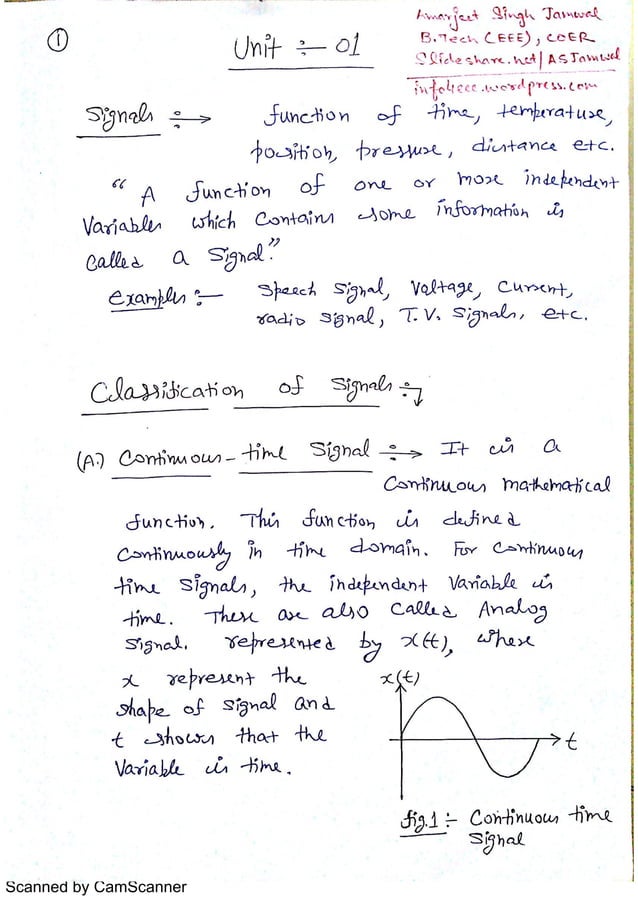 ①
Unit :- 01
Amarjeet Singh Jamwal
B.Tech (EEE), COER
Slideshare.net/ASJamwal
info4eee.wordpress.com
Signals ÷→ function of time, temperature,
position, pressure, distance etc.
"A function of one or more independent
Variables which Contains some information is
Called a Signal."
Examples :- Speech Signal, Voltage, Current,
radio signal, T.V. Signals, etc.
Classification of Signals :-
(A.) Continuous-time Signal ÷→ It is a
Continuous mathematical
function. This function is defined
Continuously in time domain. For Continuous
time Signals, the independent Variable is
time. These are also Called Analog
Signal. represented by x(t), where
x represent the
shape of signal and
t shows that the
Variable is time.
x(t)
t
fig.1 :- Continuous time
Signal
Scanned by CamScanner